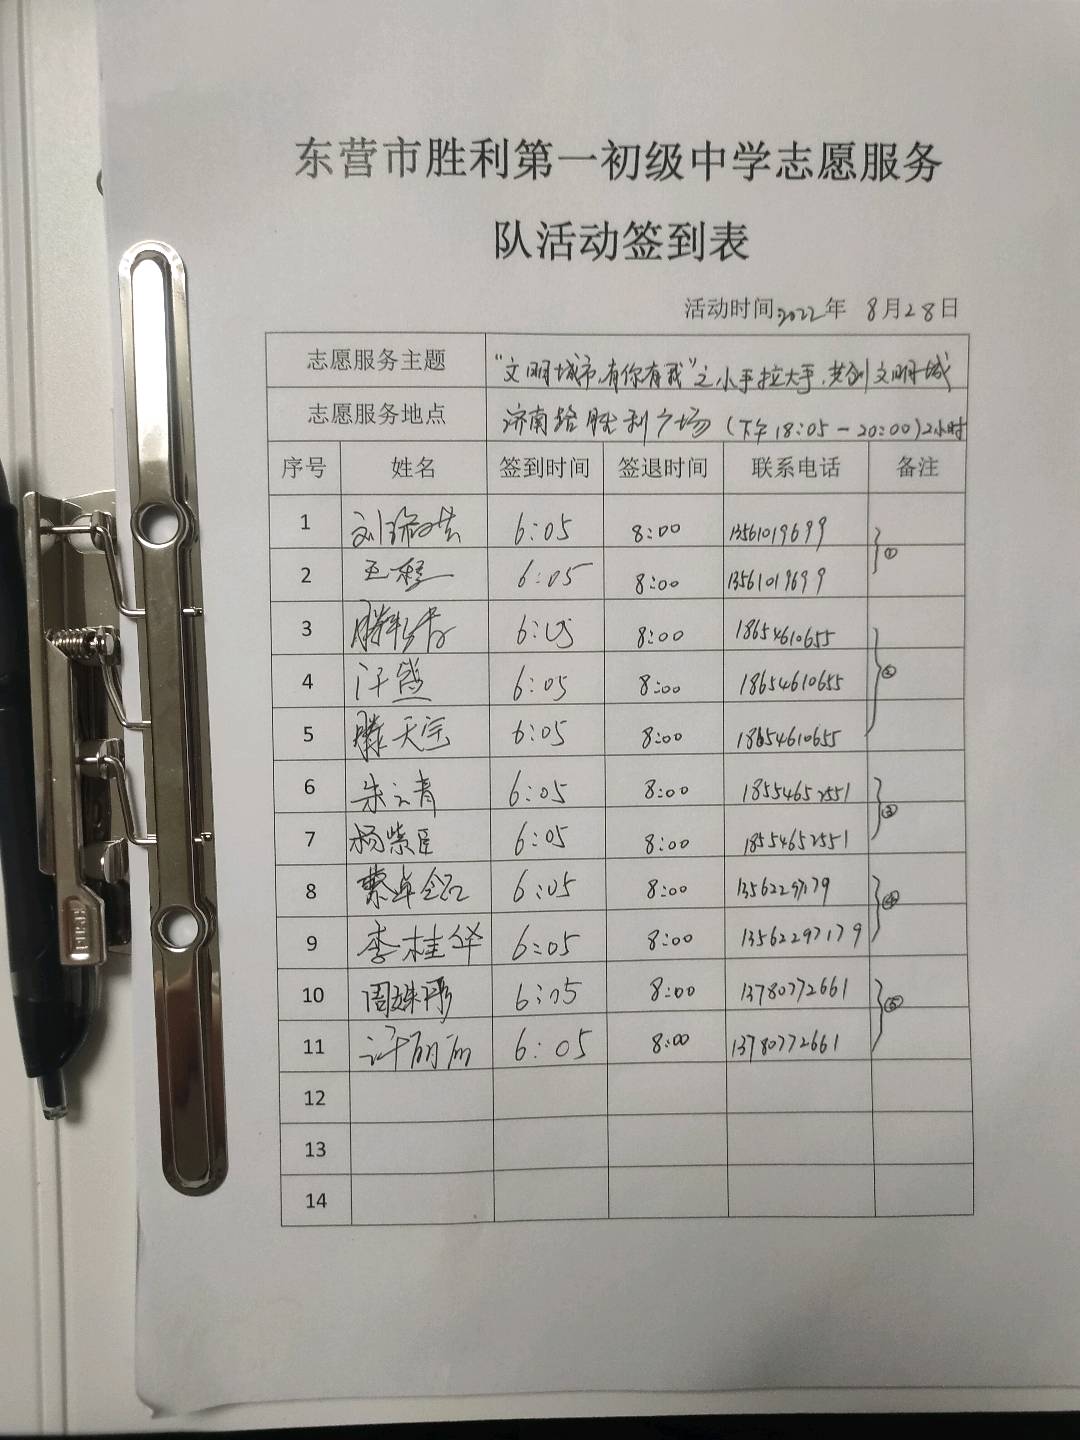 东营市胜利第一初级中学志愿服务
队活动签到表
活动时间2022年 8月28日
志愿服务主题 "文明城市,有你有我"之小手拉大手,共创文明城
志愿服务地点 济南路胜利广场(下午18:05-20:00)2小时
序号 姓名 签到时间 签退时间 联系电话 备注
1 6:05 8:00 13561019699 ①
2 6:05 8:00 13561019699
3 6:05 8:00 18654610655
4 6:05 8:00 18654610655 ②
5 滕天宇 6:05 8:00 18654610655
6 朱云青 6:05 8:00 18554652551 ③
7 杨紫臣 6:05 8:00 18554652551
8 6:05 8:00 ④
9 李桂华 6:05 8:00 13562297179
10 周姝彤 6:05 8:00 13780772661 ⑤
11 许丽丽 6:05 8:00 13780772661
12
13
14